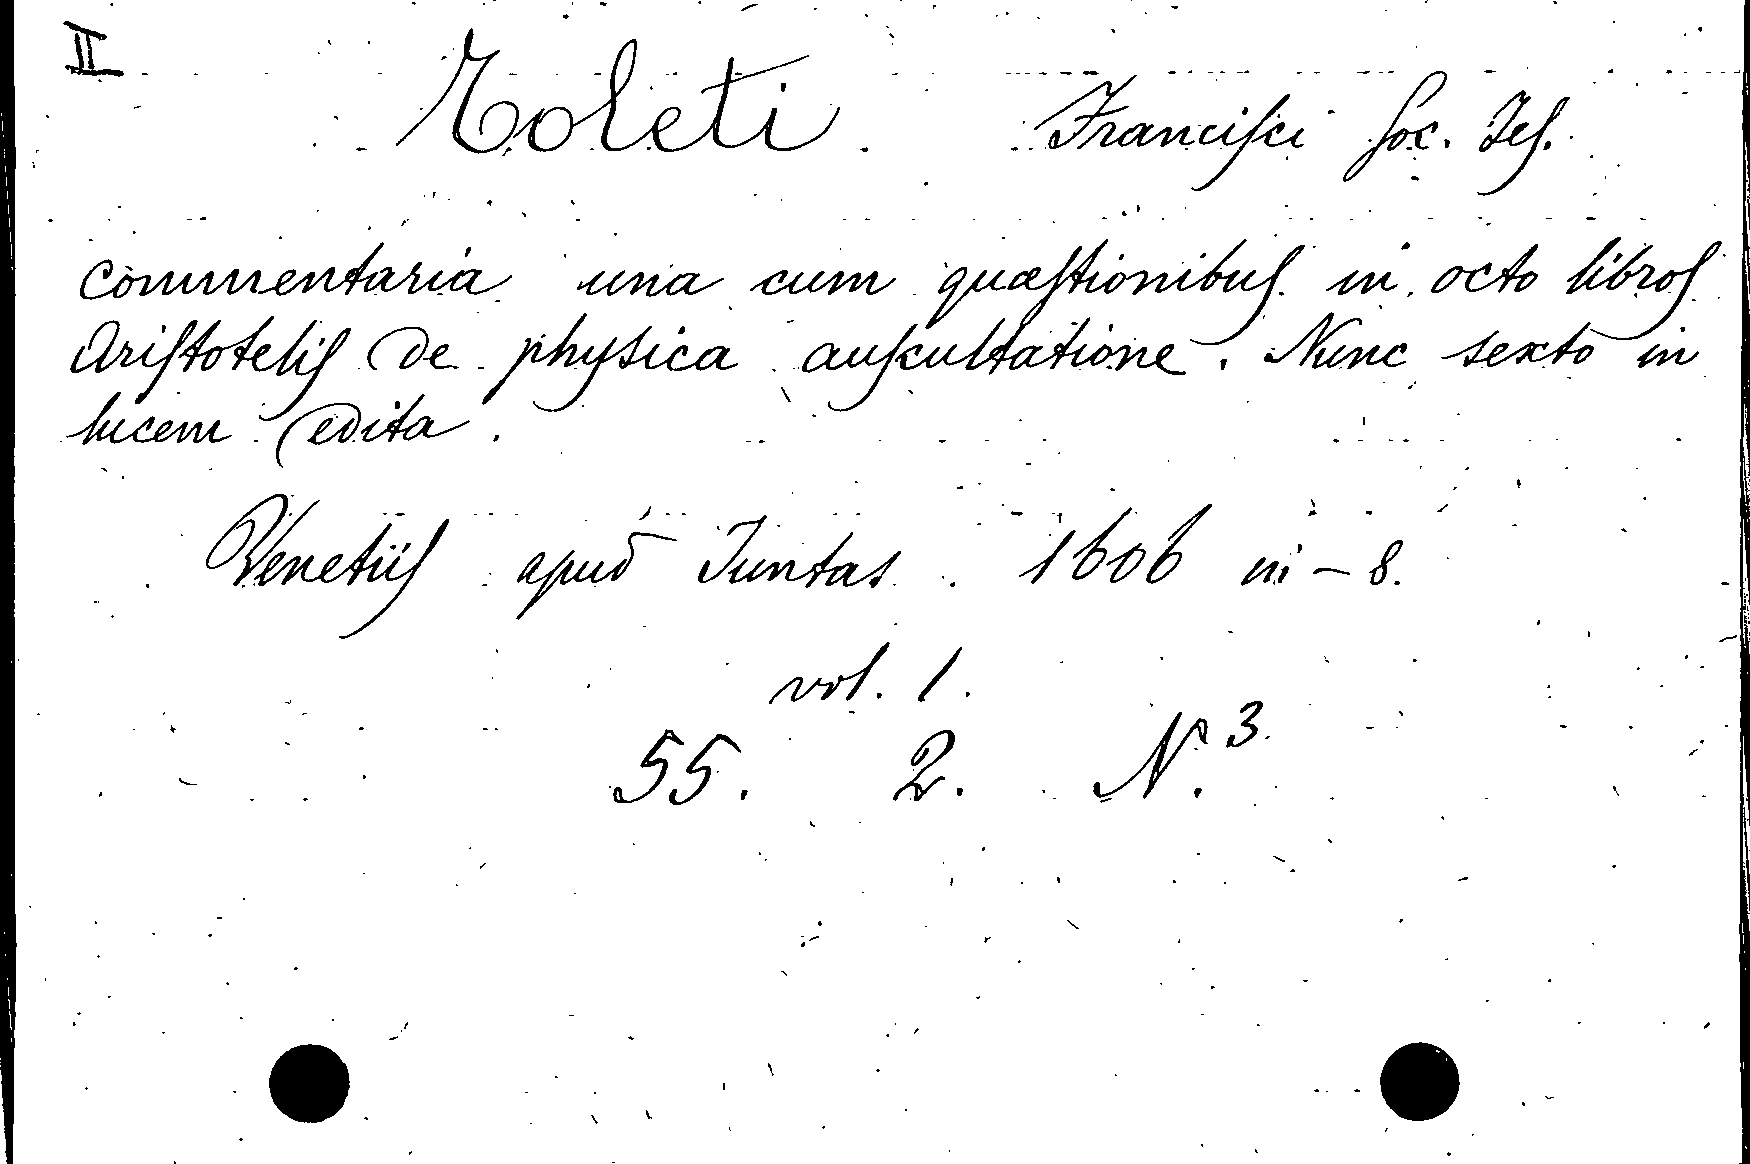 II
Toleti Franciſci Soc. Jeſ.
Commentaria una cum quæſtionibuſ in octo libroſ
Ariſtoteliſ de physica auſcultatione. Nunc sexto in
lucem edita.
Venetiiſ apud Juntas 1606 in-8.
vol. 1.
55. 2. N.º 3